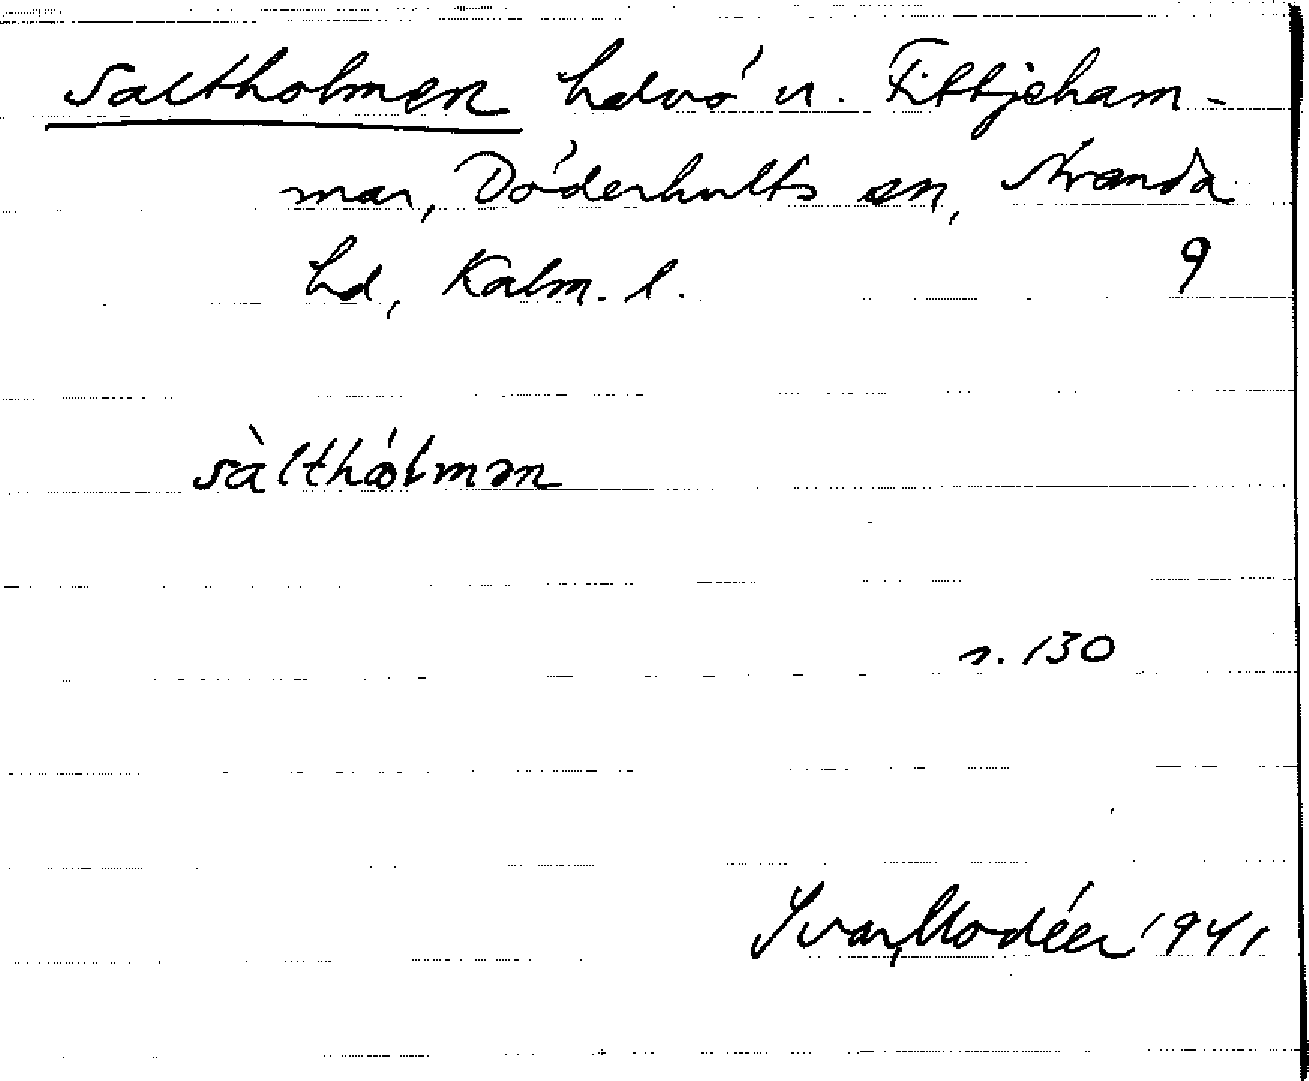 Saltholmen halvö u. Fittjeham-
mar, Döderhults sn, Stranda
hd, Kalm. l. 9
sàlthólmən
s. 130
Ivar Modéer 1941